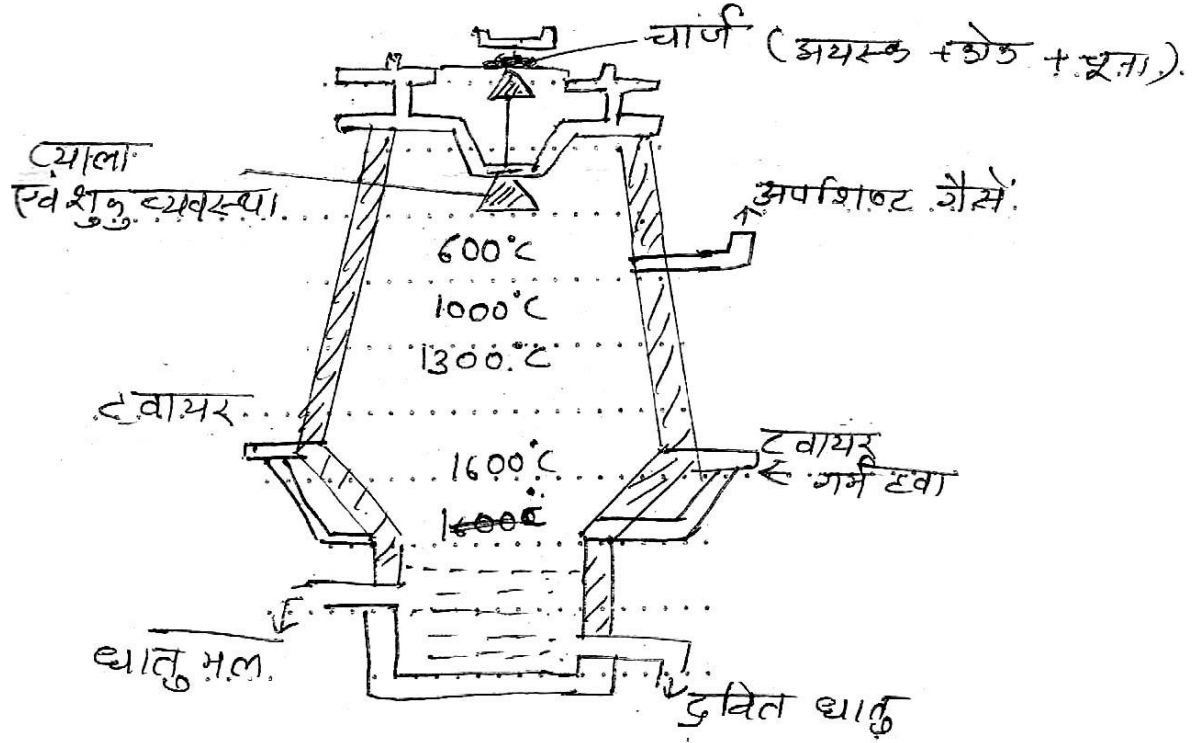 चार्ज (अयस्क + कोक + चूना).
प्याला
एवं शुकु व्यवस्था
अपशिष्ट गैसें
600°C
1000°C
1300°C
ट्वायर
1600°C
ट्वायर
गर्म हवा
धातु मल
द्रवित धातु